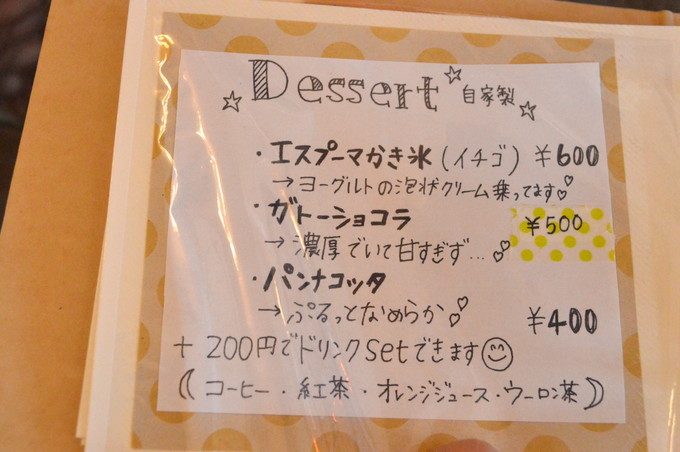 ☆Dessert☆ 自家製☆
・エスプーマかき氷(イチゴ) ¥600
→ヨーグルトの泡状クリーム乗ってます♡
・ガトーショコラ ¥500
→濃厚でいて甘すぎず...♡
・パンナコッタ
→ぷるっとなめらか♡ ¥400
+200円でドリンクsetできます☺
(コーヒー・紅茶・オレンジジュース・ウーロン茶)